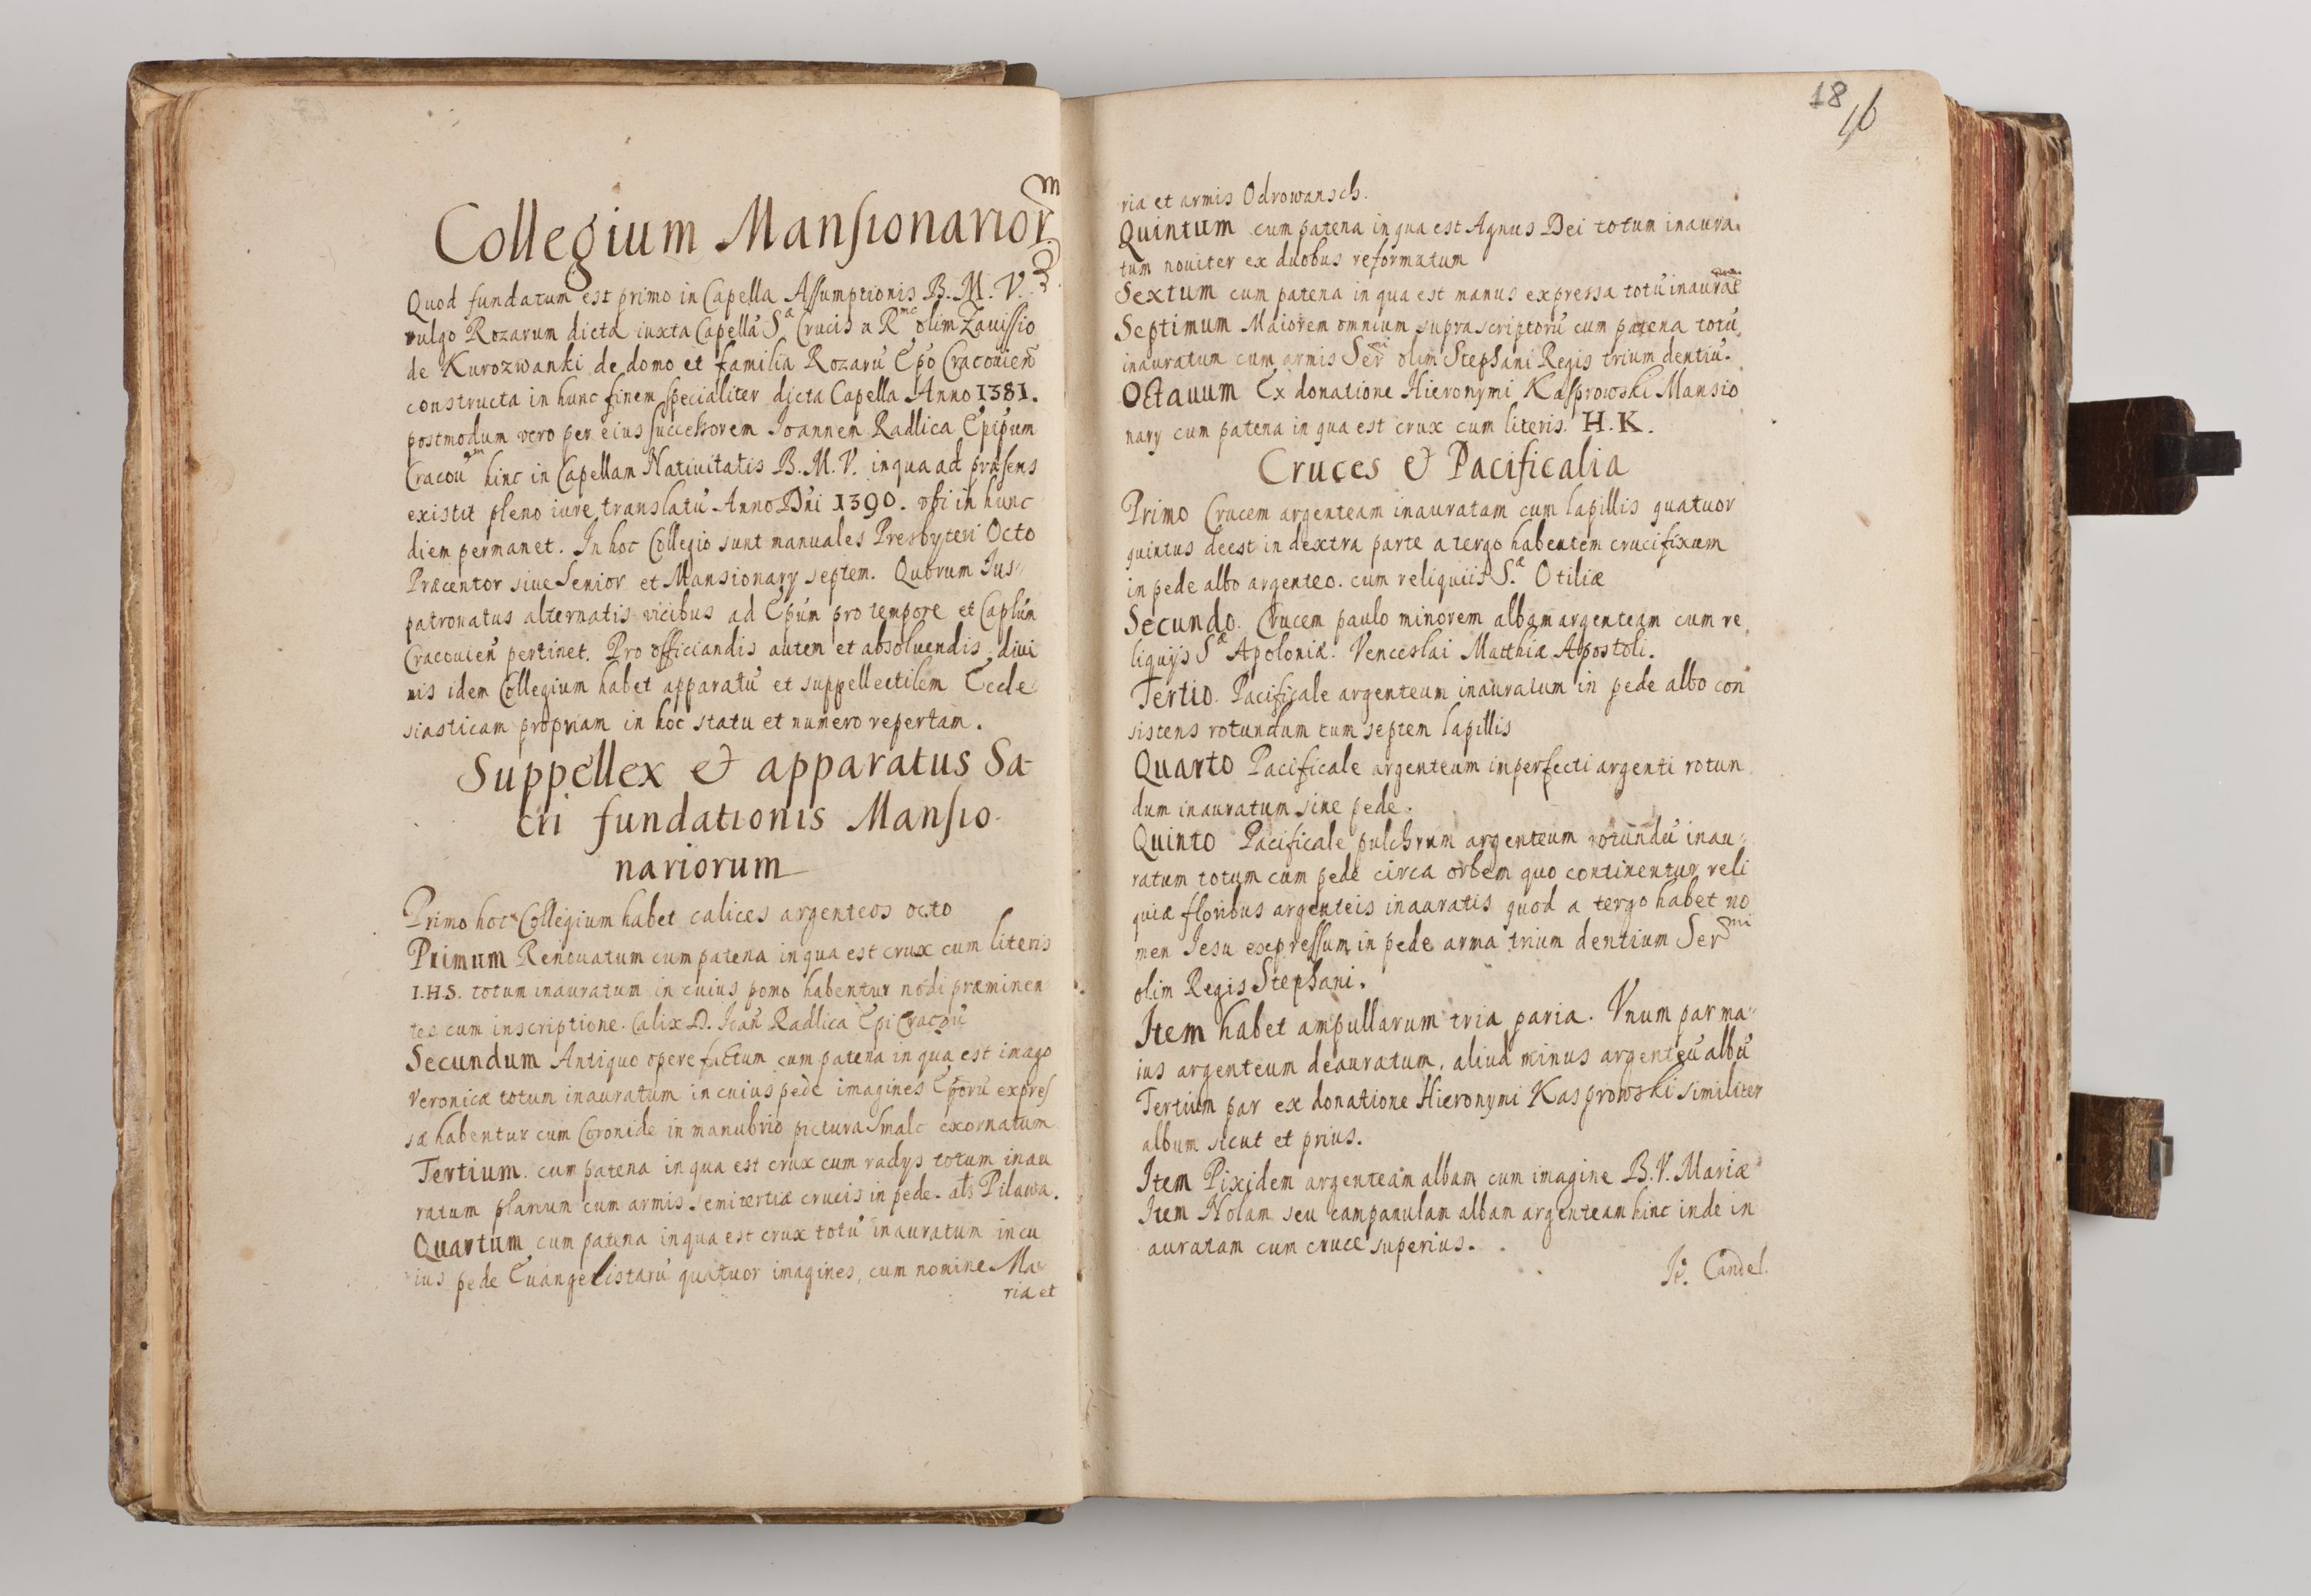 Collegium Mansionarior<sup>m</sup>
Quod fundatum est primo in Capella Assumptionis B. M. V.
vulgo Rozarum dicta iuxta Capellã S.æ Crucis a R<sup>mo</sup> olim Zauissio
de Kurozwanki de domo et familia Rozarũ Ep̃o Cracouieñ
constructa in hunc finem specialiter dicta Capella Anno 1381.
postmodum vero per eius successorem Joannem Radlica Epĩpum
Cracou<sup>em</sup> hinc in Capellam Natiuitatis B. M. V. in qua ad præsens
existit pleno iure translatũ Anno Dñi 1390. vsq; in hunc
diem permanet. In hoc Collegio sunt manuales Presbyteri Octo
Præcentor siue Senior et Mansionarij septem. Quorum Jus-
patronatus alternatis vicibus ad Ep̃um pro tempore et Caplũm
Cracouieñ pertinet. Pro officiandis autem et absoluendis diui
nis idem Collegium habet apparatũ et suppellectilem Eccle
siasticam propriam in hoc statu et numero repertam.
Suppellex & apparatus Sa-
cri fundationis Mansio-
nariorum
Primo hoc Collegium habet calices argenteos octo
Primum Renouatum cum patena in qua est crux cum literis
I.H.S. totum inauratum in cuius pomo habentur nodi præminen
tes cum inscriptione. Calix D. Joañ Radlica Epi Cracou̇
Secundum Antiquo opere factum cum patena in qua est imago
Veronicæ totum inauratum in cuius pede imagines Ep̃orũ expres
sæ habentur cum Coronide in manubrio pictura Smalc exornatum
Tertium. cum patena in qua est crux cum radijs totum inau
ratum planum cum armis semitertiæ crucis in pede. als Pilawa.
Quartum cum patena in qua est crux totũ inauratum in cu
ius pede Euangelistarũ quatuor imagines, cum nomine Ma-
ria et
18
16
ria et armis Odrowansch.
Quintum cum patena in qua est Agnus Dei totum inaura-
tum nouiter ex duobus reformatum
Sextum cum patena in qua est manus expressa totũ inaurat
Septimum Maiorem omnium suprascriptorũ cum patena totũ
inauratum cum armis Ser<sup>mi</sup> olim Stephani Regis trium dentiũ.
Octauum Ex donatione Hieronymi Kasprowski Mansio
narÿ cum patena in qua est crux cum literis. H. K.
Cruces & Pacificalia
Primo Crucem argenteam inauratam cum lapillis quatuor
quintus deest in dextra parte a tergo habentem crucifixum
in pede albo argenteo. cum reliquiis S.æ Otiliæ
Secundo. Crucem paulo minorem albam argenteam cum re
liquijs S.æ Apoloniæ. Venceslai Matthiæ Apostoli.
Tertio. Pacificale argenteum inauratum in pede albo con
sistens rotundum cum septem lapillis
Quarto Pacificale argenteum inperfecti argenti rotun
dum inauratum sine pede.
Quinto Pacificale pulchrum argenteum rotundũ inau-
ratum totum cum pede circa orbem quo continentur reli
quiæ floribus argenteis inauratis quod a tergo habet no
men Jesu expressum in pede arma trium dentium Ser<sup>mi</sup>
olim Regis Stephani.
Item habet ampullarum tria paria. Vnum par ma-
ius argenteum deauratum, aliud minus argenteũ albũ
Tertium par ex donatione Hieronymi Kasprowski similiter
album sicut et prius.
Item Pixidem argenteam albam cum imagine B.V. Mariæ
Item Nolam seu campanulam albam argenteam hinc inde in
auratam cum cruce superius.
It. Candel.